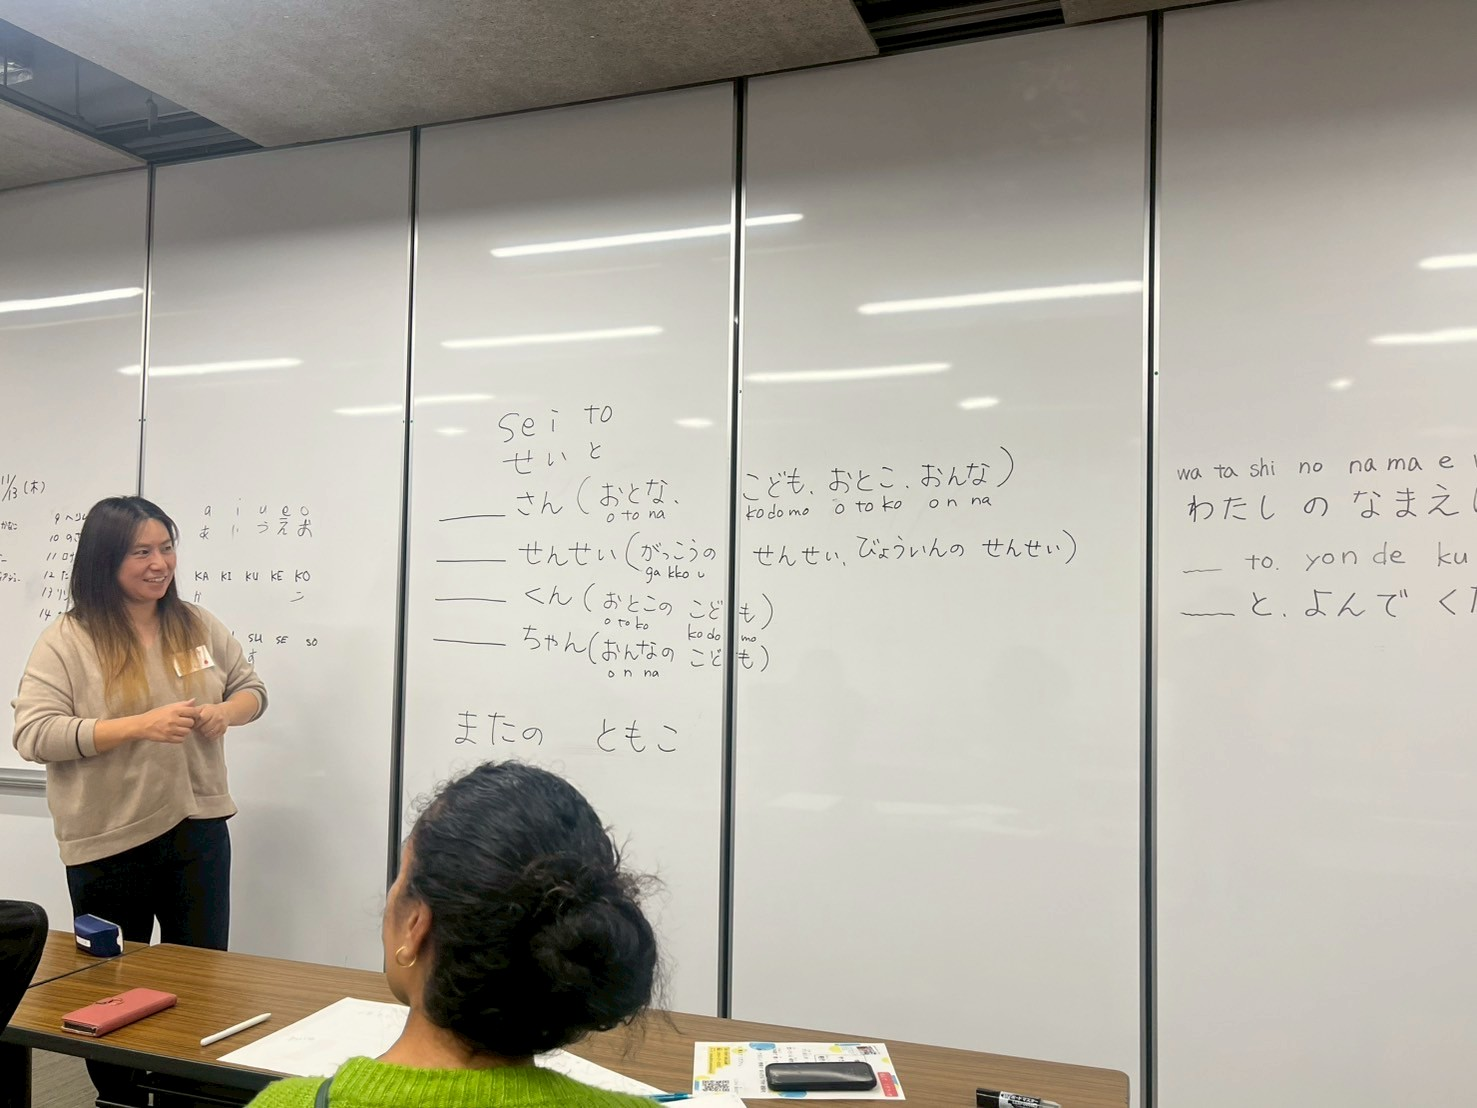 11/13 (木)
a i u e o
あ い う え お
KA KI KU KE KO
か こ
SU SE SO
す
sei to
せいと
さん(おとな、こども、おとこ、おんな)
otona kodomo otoko onna
せんせい(がっこうの せんせい、びょういんの せんせい)
gakkou
くん(おとこの こども)
otoko kodomo
ちゃん(おんなの こども)
onna
またの ともこ
wa ta shi no na ma e
わたし の なまえ
to. yon de ku
と、よんで くだ